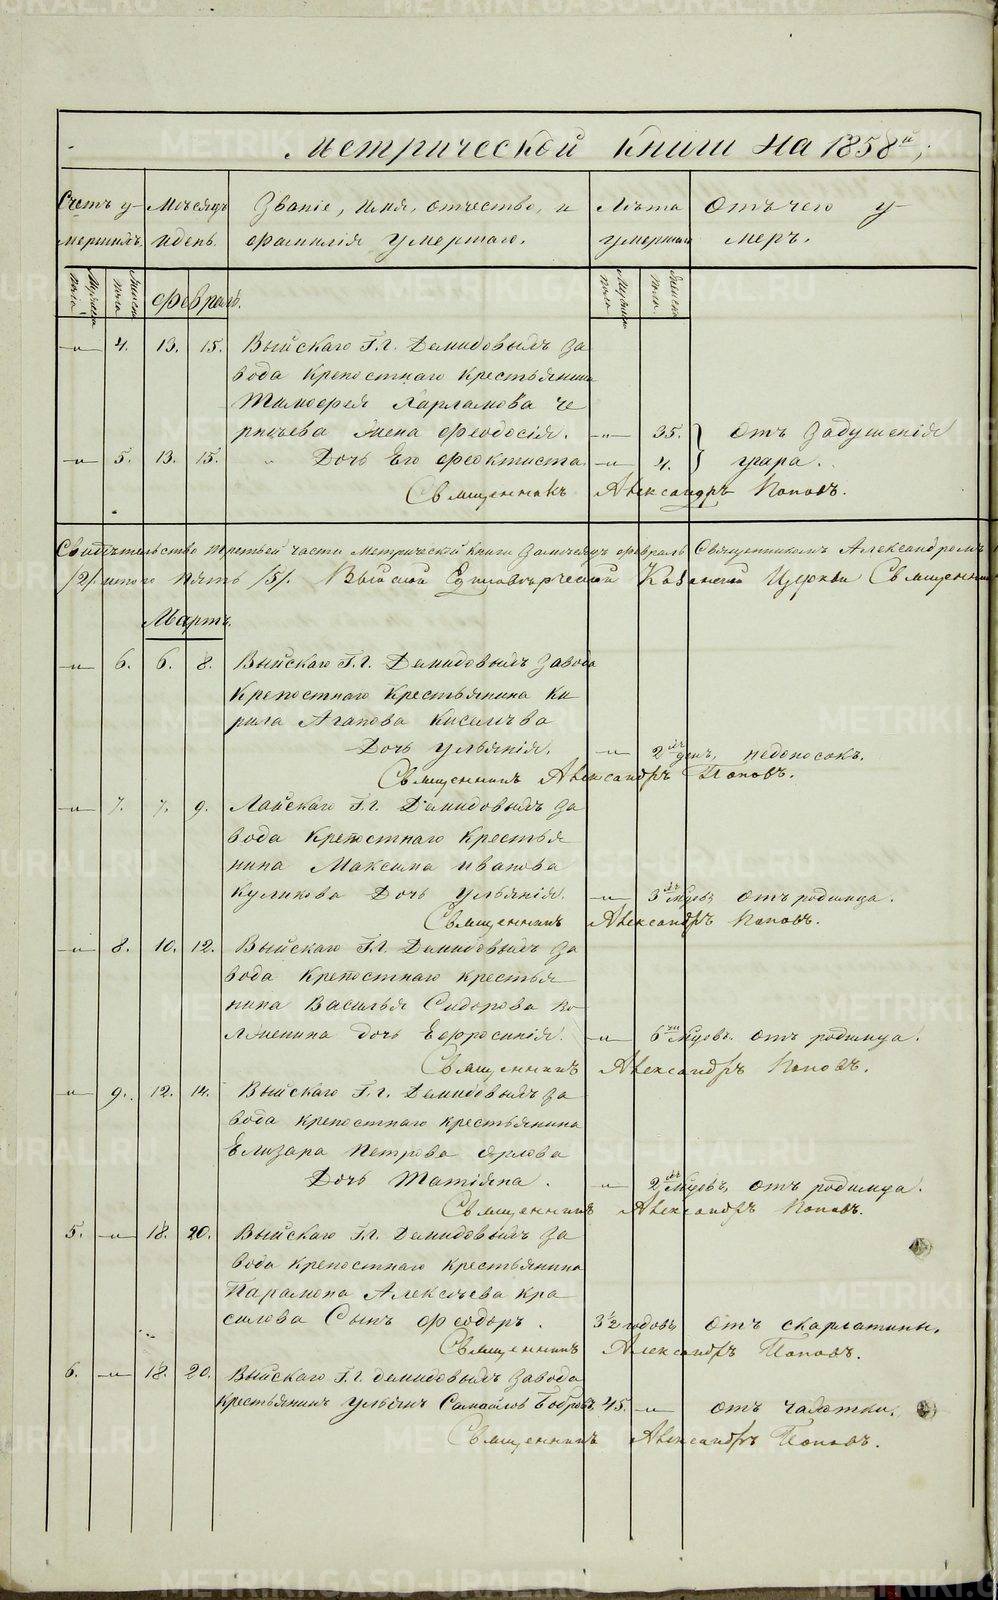 Метрической Книги на 1858й,
Счетъ у- Мѣсяцъ Званіе, имя, отчество, и Лѣта Отъ чего у-
мершихъ. и день. фамилія умершаго. умершаго меръ.
Мужеска пола. Женска пола. Февраль. Мужеска пола Женска пола.
—„— 4. 13. 15. Выйскаго Г.г. Демидовыхъ за
вода крепостнаго крестьянина
Тимофея Харламова Че
рпчева жена Феодосія. —„— 35. } Отъ задушенія
—„— 5. 13. 15. „ Дочь Его Феоктиста. —„— 4. } угара.
Священникъ Александръ Поповъ.
Свидѣтельство третьей части метрической Книги За мѣсяцъ февраль Священникомъ Александромъ
/2/. итого пять /5/. Выйской Единовѣрческой Казанской Церкви Священник
Мартъ.
—„— 6. 6. 8. Выйскаго Г.г. Демидовыхъ завода
Крепостнаго Крестьянина Ки
рила Агапова Киселѣва
Дочь Ульянія. —„— 2хъ дней, недоносокъ.
Священникъ Александръ Поповъ.
—„— 7. 7. 9. Лайскаго Г.г. Демидовыхъ за
вода Крепостнаго Крестья
нина Максима Иванова
Куликова Дочь Ульянія. —„— 3хъ Мцовъ, отъ родимца.
Священникъ Александръ Поповъ.
—„— 8. 10. 12. Выйскаго Г.г. Демидовыхъ за
вода Крепостнаго крестья
нина Василья Сидорова Ко
лменина дочь Ефросинія. —„— 6ти Мцовъ. отъ родимца.
Священникъ Александръ Поповъ.
—„— 9. 12. 14. Выйскаго Г.г. Демидовыхъ за
вода крепостнаго крестьянина
Елизара Петрова Орлова
Дочь Татіяна. —„— 2хъ Мцовъ, отъ родимца.
Священникъ Александръ Поповъ.
5. —„— 18. 20. Выйскаго Г.г. Демидовыхъ за
вода крепостнаго крестьянина
Парамона Алексѣева Кра
силова Сынъ Феодоръ. 3½ годовъ отъ скарлатины.
Священникъ Александръ Поповъ.
6. —„— 18. 20. Выйскаго Г.г. демидовыхъ завода
крестьянинъ Ульянъ Самойловъ Бобровъ, 45. —„— отъ чахотки.
Священникъ Александръ Поповъ.
METRIKI.GASO-URAL.RU